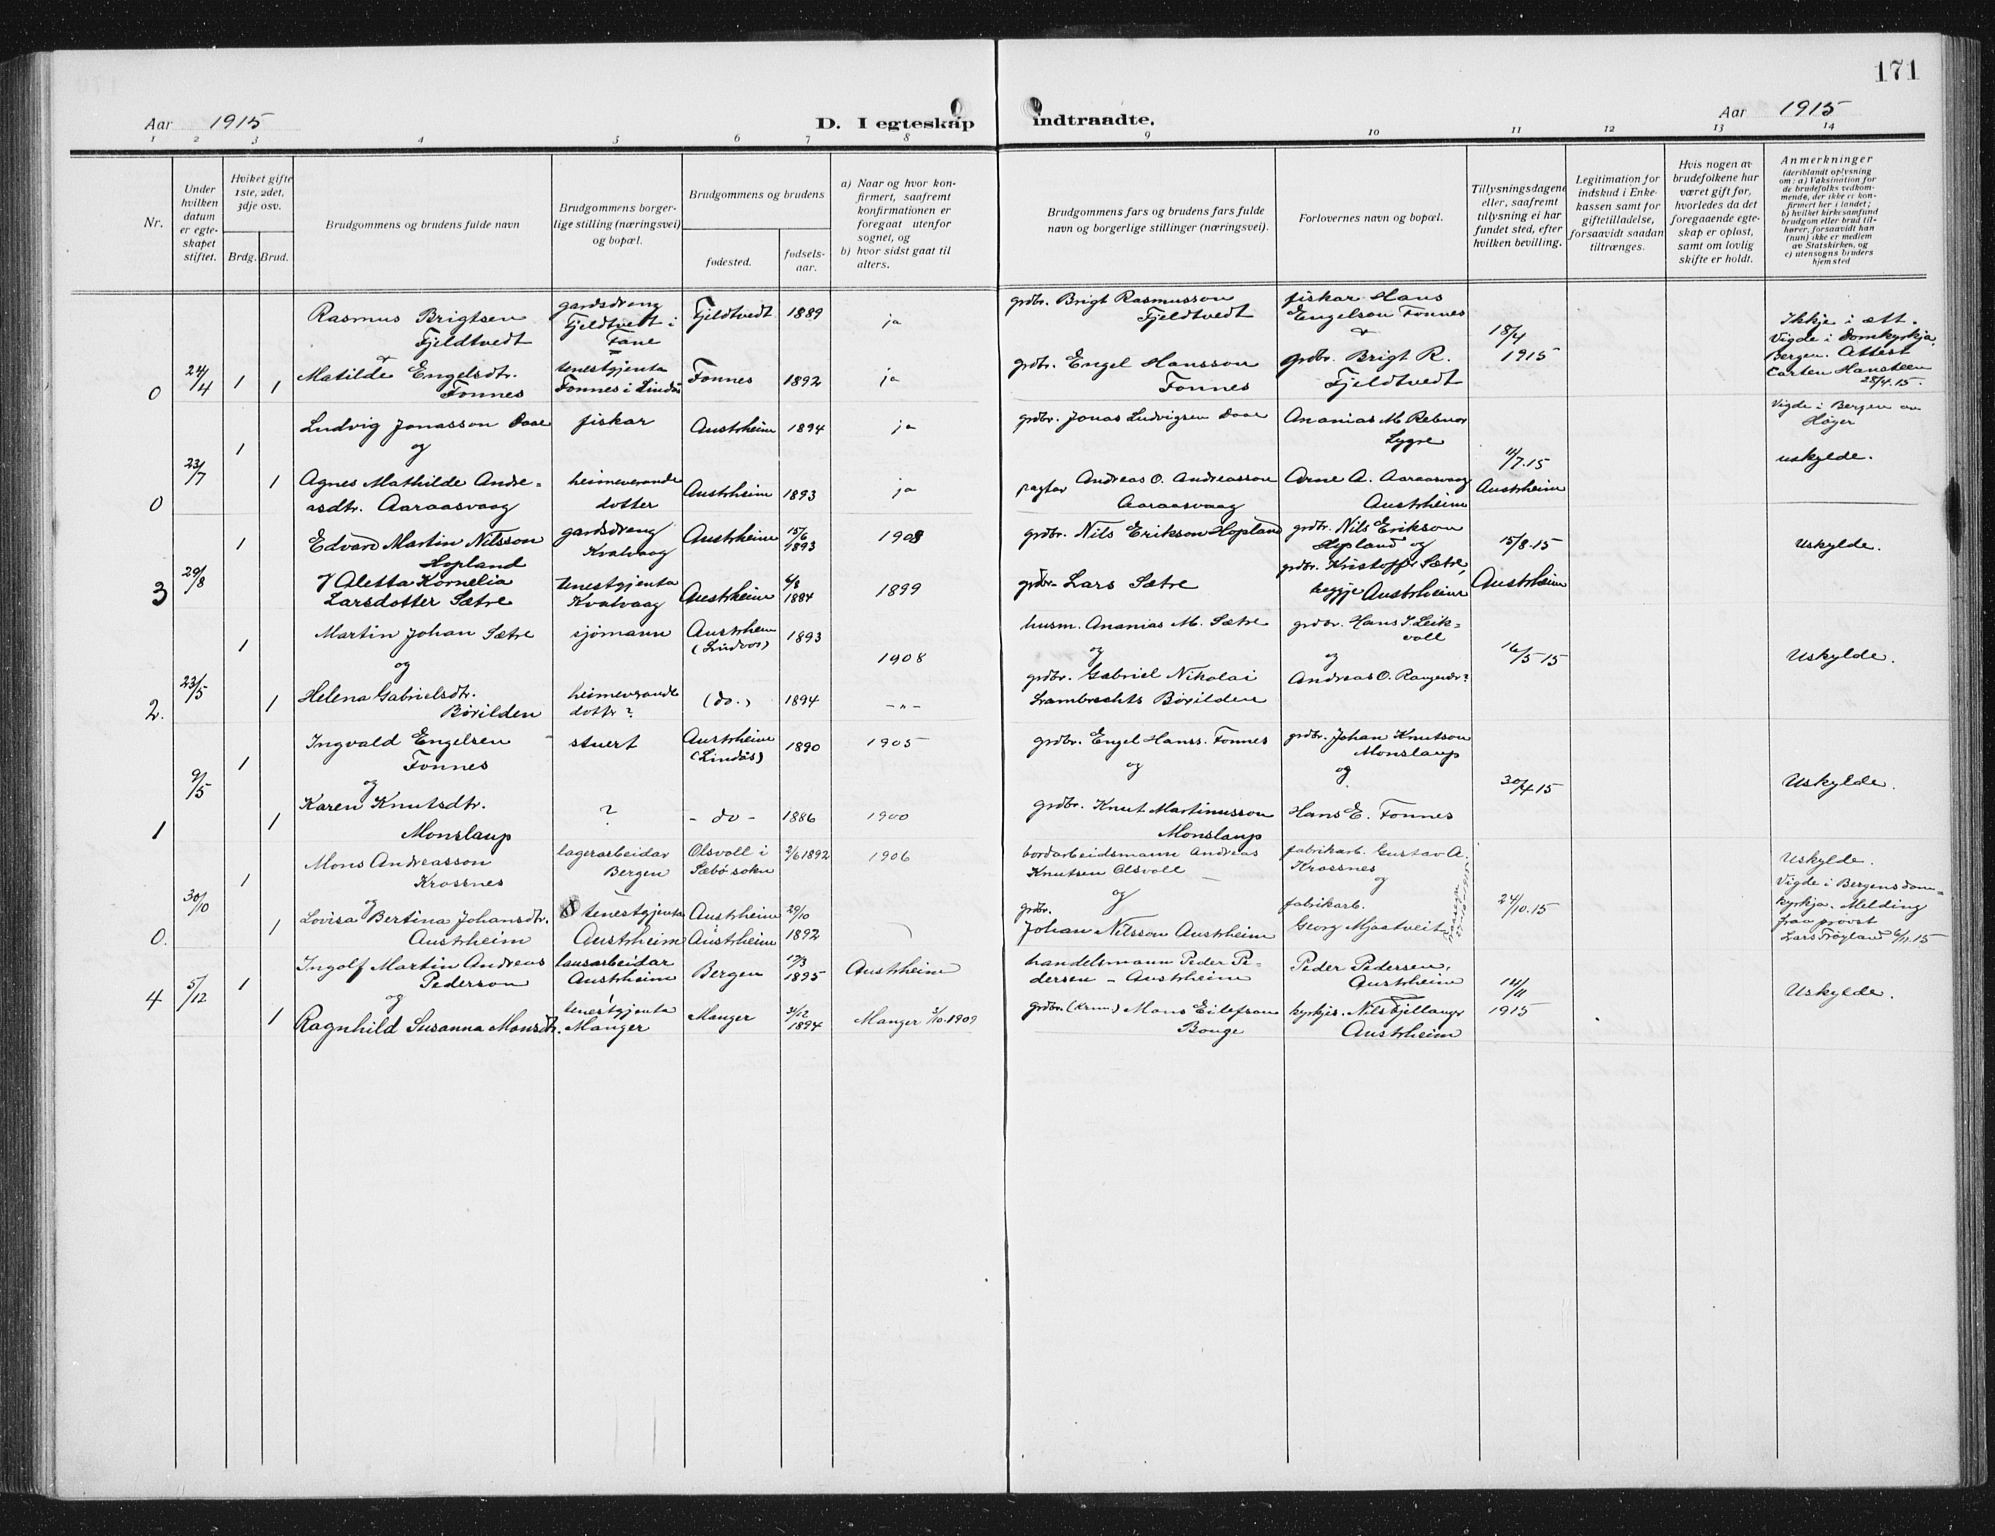 171
Aar 1915
D. I egteskap indtraadte.
Aar 1915
1 2 3 4 5 6 7 8 9 10 11 12 13 14
Nr.
Under hvilken datum er egteskapet stiftet.
Hvilket gifte 1ste, 2det, 3dje osv.
Brdg. Brud.
Brudgommens og brudens fulde navn
Brudgommens borgerlige stilling (næringsvei) og bopæl.
Brudgommens og brudens
fødested.
fødselsaar.
a) Naar og hvor konfirmert, saafremt konfirmationen er foregaat utenfor sognet, og
b) hvor sidst gaat til alters.
Brudgommens fars og brudens fars fulde navn og borgerlige stillinger (næringsvei).
Forlovernes navn og bopæl.
Tillysningsdagene eller, saafremt tillysning ei har fundet sted, efter hvilken bevilling.
Legitimation for indskud i Enkekassen samt for giftetilladelse, forsaavidt saadan tiltrænges.
Hvis nogen av brudefolkene har været gift før, hvorledes da det foregaaende egteskap er opløst, samt om lovlig skifte er holdt.
Anmerkninger (deriblandt oplysning om: a) Vaksination for de brudefolks vedkommende, der ikke er konfirmert her i landet; b) hvilket kirkesamfund brudgom eller brud tilhører, forsaavidt han (hun) ikke er medlem av Statskirken, og c) utensogns bruders hjemsted
Rasmus Brigtsen Fjeldtvedt
gardsdreng Fjeldtvedt i Fane
Fjeldtvedt 1889 ja
grdbr. Brigt Rasmusson Fjeldtvedt
fiskar Hans Engelson Fonnes
18/4 1915
Ikkje i ætt. Vigde i Domkyrkja, Bergen. Attest Carten Hansteen 28/4.15.
0 24/4 1 1
Matilde Engelsdtr. Fonnes
tenestgjenta Fonnes i Lindås
Fonnes 1892 ja
grdbr. Engel Hansson Fonnes
grdbr. Brigt R. Fjeldtvedt
Ludvig Jonasson Daae
og
fiskar Austrheim 1894 ja
grdbr. Jonas Ludvigsen Daae
Ananias M. Rebnor Lygre
Vigde i Bergen av Høyer
uskylde.
0 23/7 1 1
Agnes Mathilde Andreasdtr. Aaraasvaag
heimeverande dotter
Austrheim 1893 ja
Andreas O. Andreasson Aaraasvaag
Arne A. Aaraasvaag Austrheim
11/7.15 Austrheim
Edvard Martin Nilsson Hopland
gardsdreng Kvalvaag
Austrheim 15/6 1893 1908
grdbr. Nils Erikson Hopland
grdbr. Nils Erikson Hopland og
15/8.15 Austrheim
Uskylde.
3 29/8 1
Aletta Kornelia Larsdotter Sætre
tenestgjenta Kvalvaag
Austrheim 6/8 1884 1899
grdbr. Lars Sætre
grdbr. Kristoffer Sætre, begge Austrheim
Martin Johan Sætre
og
sjømann
Austrheim (Lindaas) 1893
1908
husm. Ananias M. Sætre
og
grdbr. Hans J. Leikvoll
og
16/5 15
Uskylde.
2. 23/5 1 1
Helena Gabrielsdtr. Børilden
heimeverande dottr?
(do.) 1894 -"-
grdbr. Gabriel Nikolai Lambrechts Børilden
Andreas O.
Ingvald Engelsen Fonnes
og
stuert
Austrheim (Lindås) 1890 1905
grdbr. Engel Hanss. Fonnes
og
grdbr. Johan Knutson Monslaup
og
30/4.15
Uskylde.
1 9/5 1 1
Karen Knutsdtr. Monslaup
? - do - 1886 1900
grdbr. Knut Martinusson Monslaup
Hans E. Fonnes
Mons Andreasson Krossnes
og
lagerarbeidar Bergen
Olsvoll i Sæbø sokn
2/6 1892 1906
bordarbeidsmann Andreas Knutsen Olsvoll
og
fabrikarb. Gustav A. Krossnes
og
24/10.15
Uskylde.
Vigde i Bergens domkyrkja. Melding fraa prøvst Lars Frøyland 6/11.15
0. 30/10 1 1
Lovisa Bertina Johansdtr. Austrheim
tenestgjenta Austrheim
Austrheim Austrheim
29/10 1892
grdbr. Johan Nilsson Austrheim
fabrikarb. Georg Mjaatveit
Ingolf Martin Andreas Pederson
og
lausarbeidar Austrheim
Bergen 12/3 1895 Austrheim
handelsmann Peder Pedersen - Austrheim
Peder Pedersen, Austrheim
14/11 1915
Uskylde.
4 5/12 1 1
Ragnhild Susanna Monsdtr.
tenestgjenta Manger
Manger 31/12 1894 Manger 3/10.1909
grdbr. Mons Eilefson Bouge
kyrkjs. Nils Fjellanger Austrheim